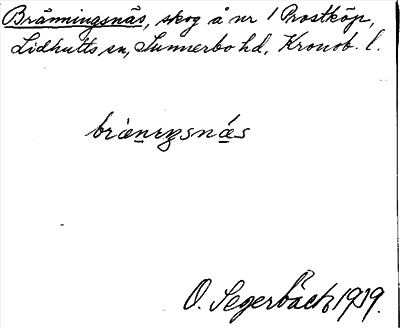 Bränningsnäs, skog å nr 1 Prostköp,
Lidhults sn, Sunnerbo hd, Kronob. l.
bränıŋsnä́s
O. Segerbäck 1919.